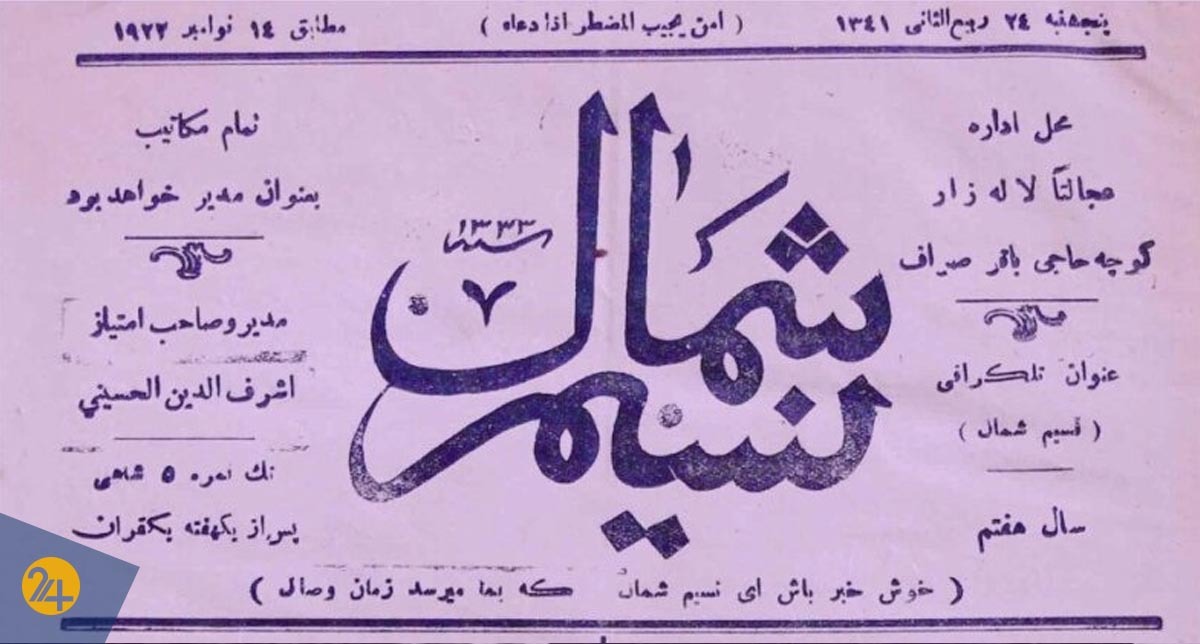 پنجشنبه ۲۴ ربیع الثانی ۱۳۴۱ ( امن یجیب المضطر اذا دعاه ) مطابق ۱۴ نوامبر ۱۹۲۲
محل اداره
عجالتاً لاله زار
کوچه حاجی باقر صراف
عنوان تلکرافی
( نسیم شمال )
سال هفتم
نسیم شمال
سنه ۱۳۳۳
۷
تمام مکاتیب
بعنوان مدیر خواهد بود
مدیر و صاحب امتیاز
اشرف الدین الحسینی
تک نمره ۵ شاهی
پس از یکهفته یکقران
( خوش خبر باش ای نسیم شمال که بما میرسد زمان وصال )
24